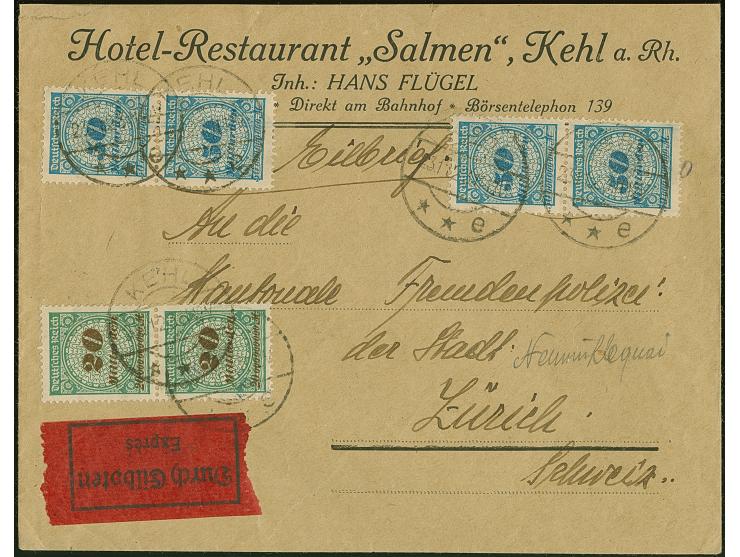 Hotel-Restaurant „Salmen“, Kehl a. Rh.
Inh.: HANS FLÜGEL
* Direkt am Bahnhof * Börsentelephon 139
KEHL
KEHL
Deutsches Reich
50
Milliarden
Deutsches Reich
50
Milliarden
Deutsches Reich
50
Milliarden
Deutsches Reich
50
Milliarden
* * e
* * e
Eilbrief.
An die
Kantonale Fremdenpolizei
der Stadt Neumühlequai
Zürich.
Schweiz.
KEHL
Deutsches Reich
20
Milliarden
Deutsches Reich
20
Milliarden
Durch Eilboten
Exprès